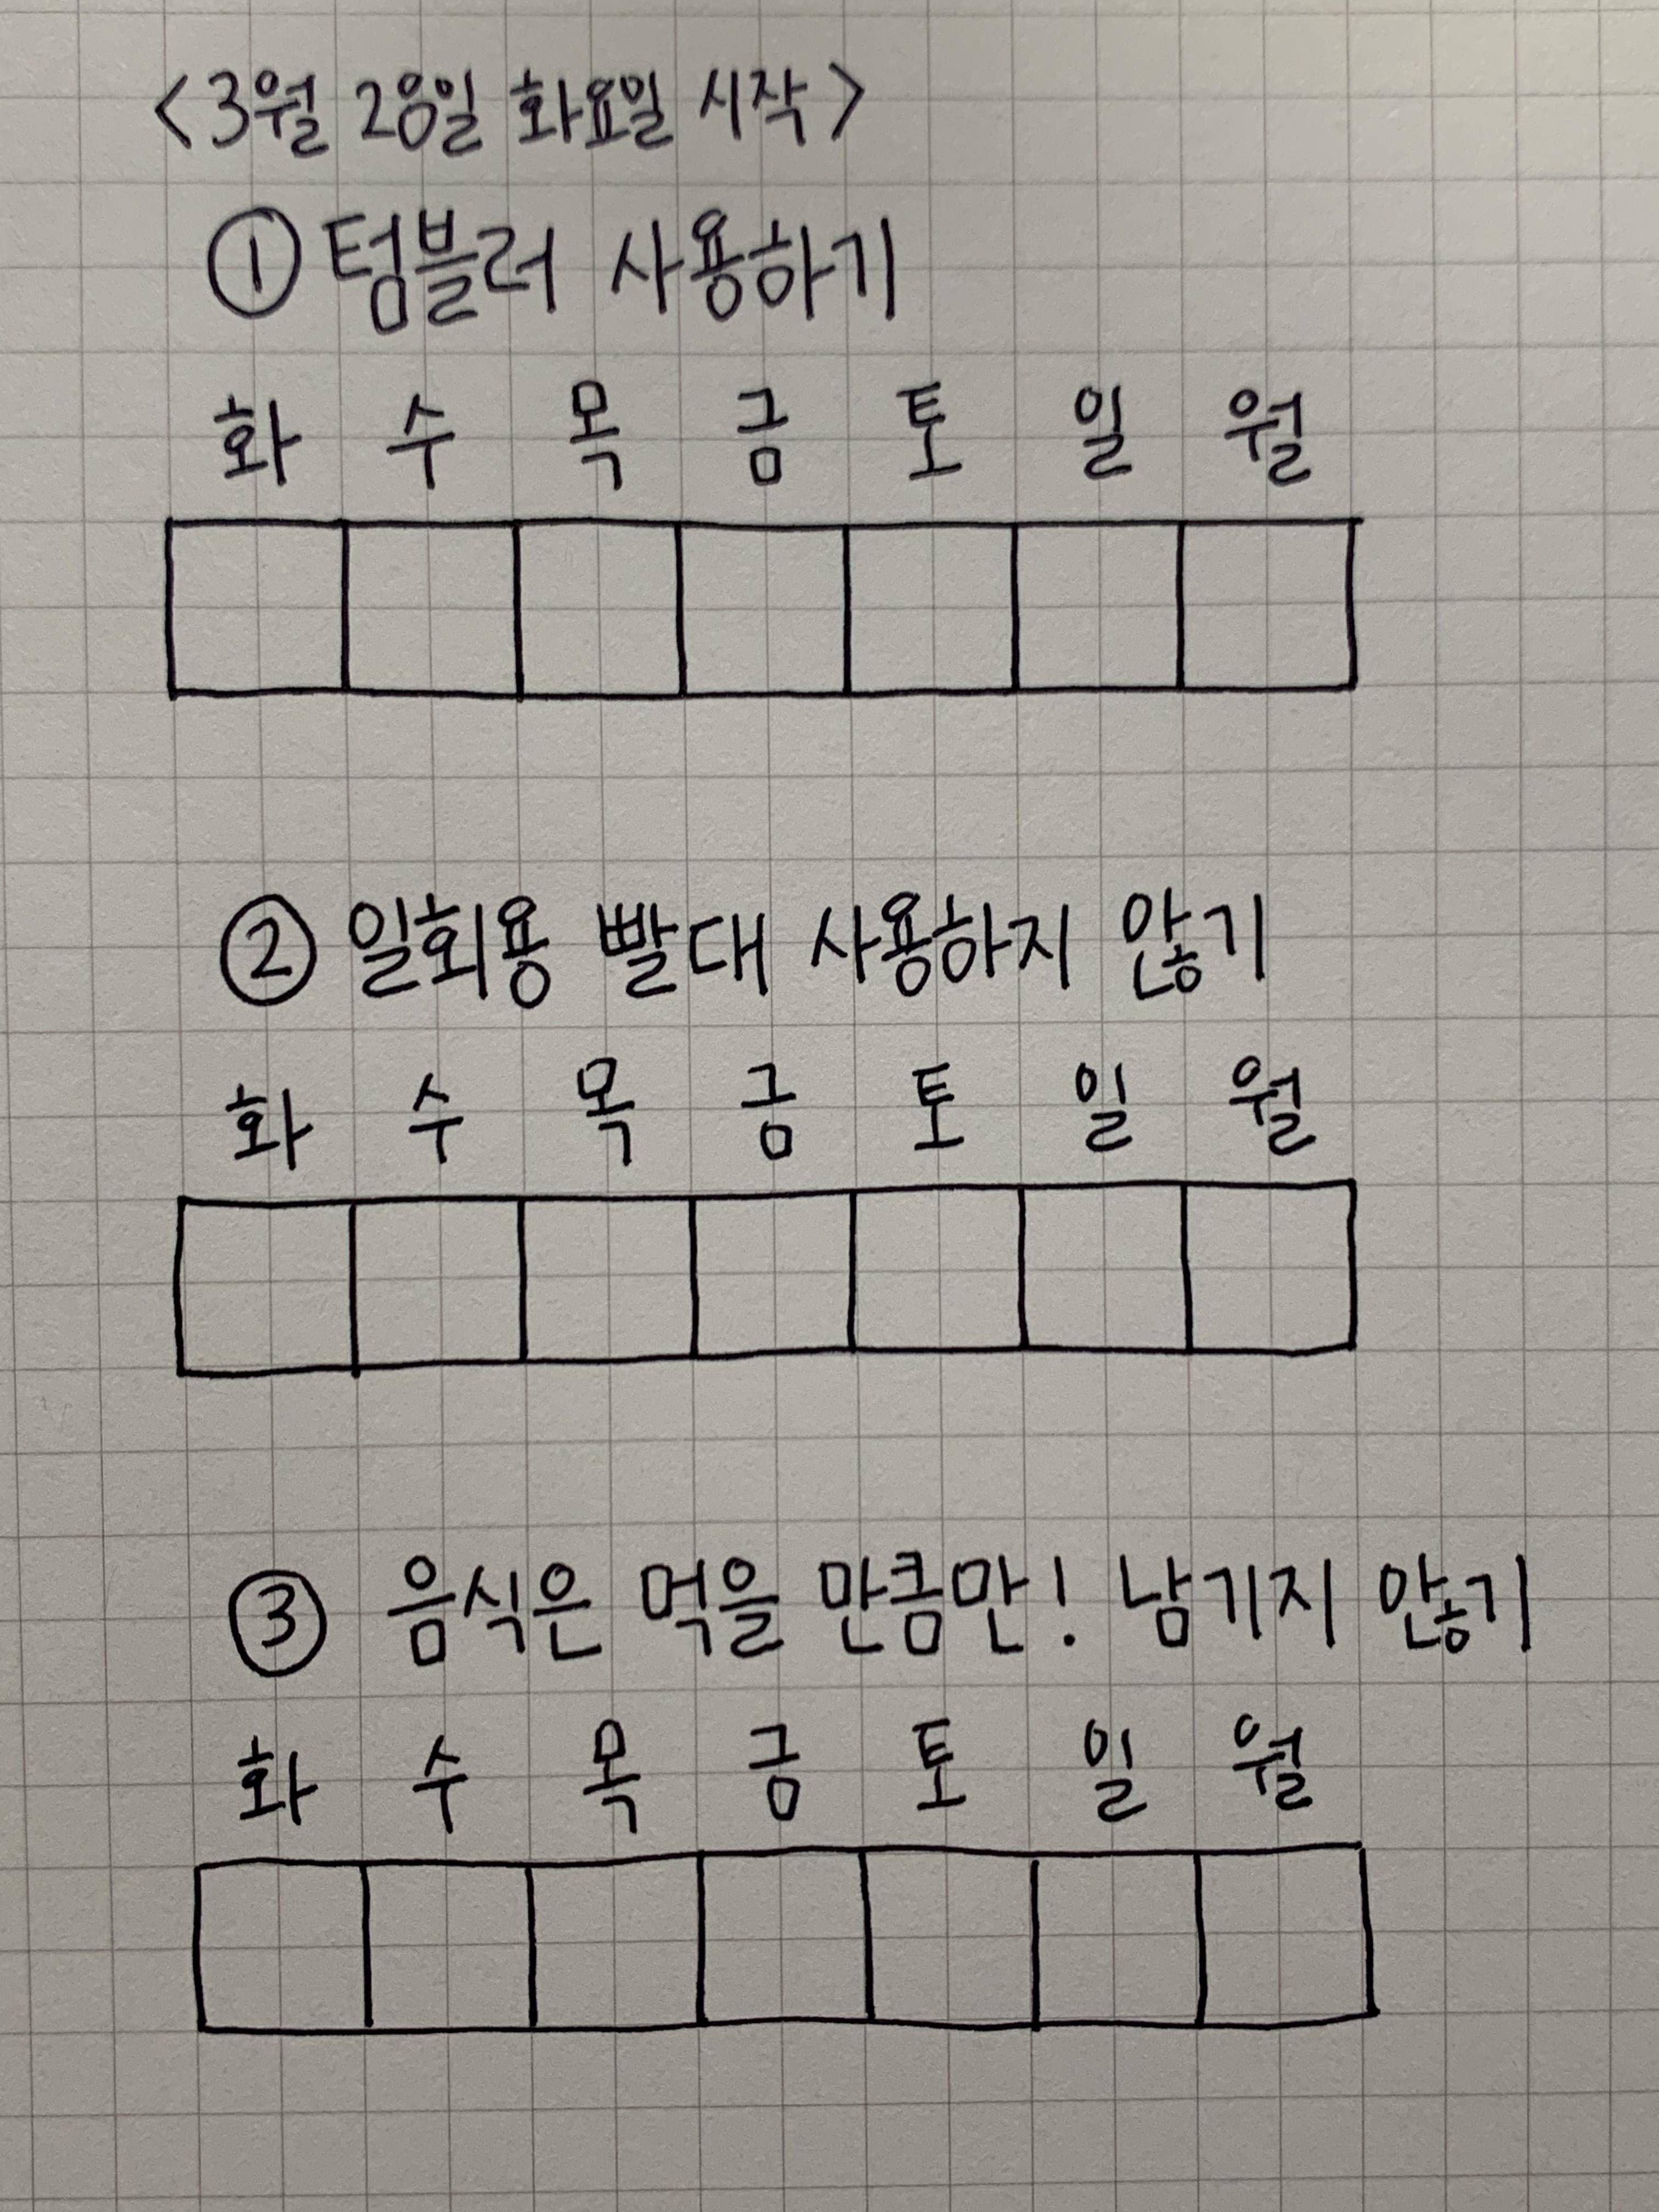 <3월 28일 화요일 시작>
① 텀블러 사용하기
화 수 목 금 토 일 월
② 일회용 빨대 사용하지 않기
화 수 목 금 토 일 월
③ 음식은 먹을 만큼만! 남기지 않기
화 수 목 금 토 일 월